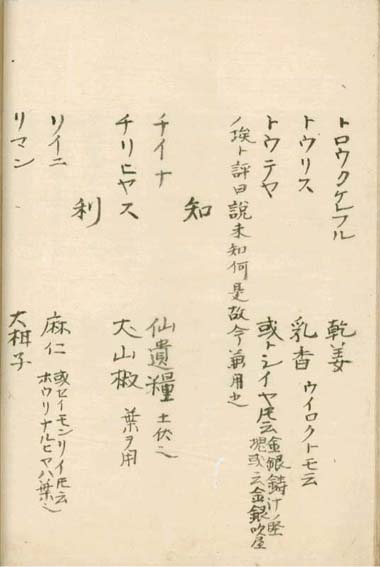 トロウクケフル　乾姜
トウリス　乳香　ウイロクトモ云
トウテヤ　或トシイヤ厇云金銀鋳汁ノ堅塊或云金銀吹屋
ノ埃ト評曰説未知何是故今兼用之
知
チイナ　仙遺糧　土伏也
チリヒヤス　犬山椒　葉ヲ用
利
リイニ　麻仁　或セイモンリイ厇云ホウリナルヒヤハ葉也
リマン　大柑子